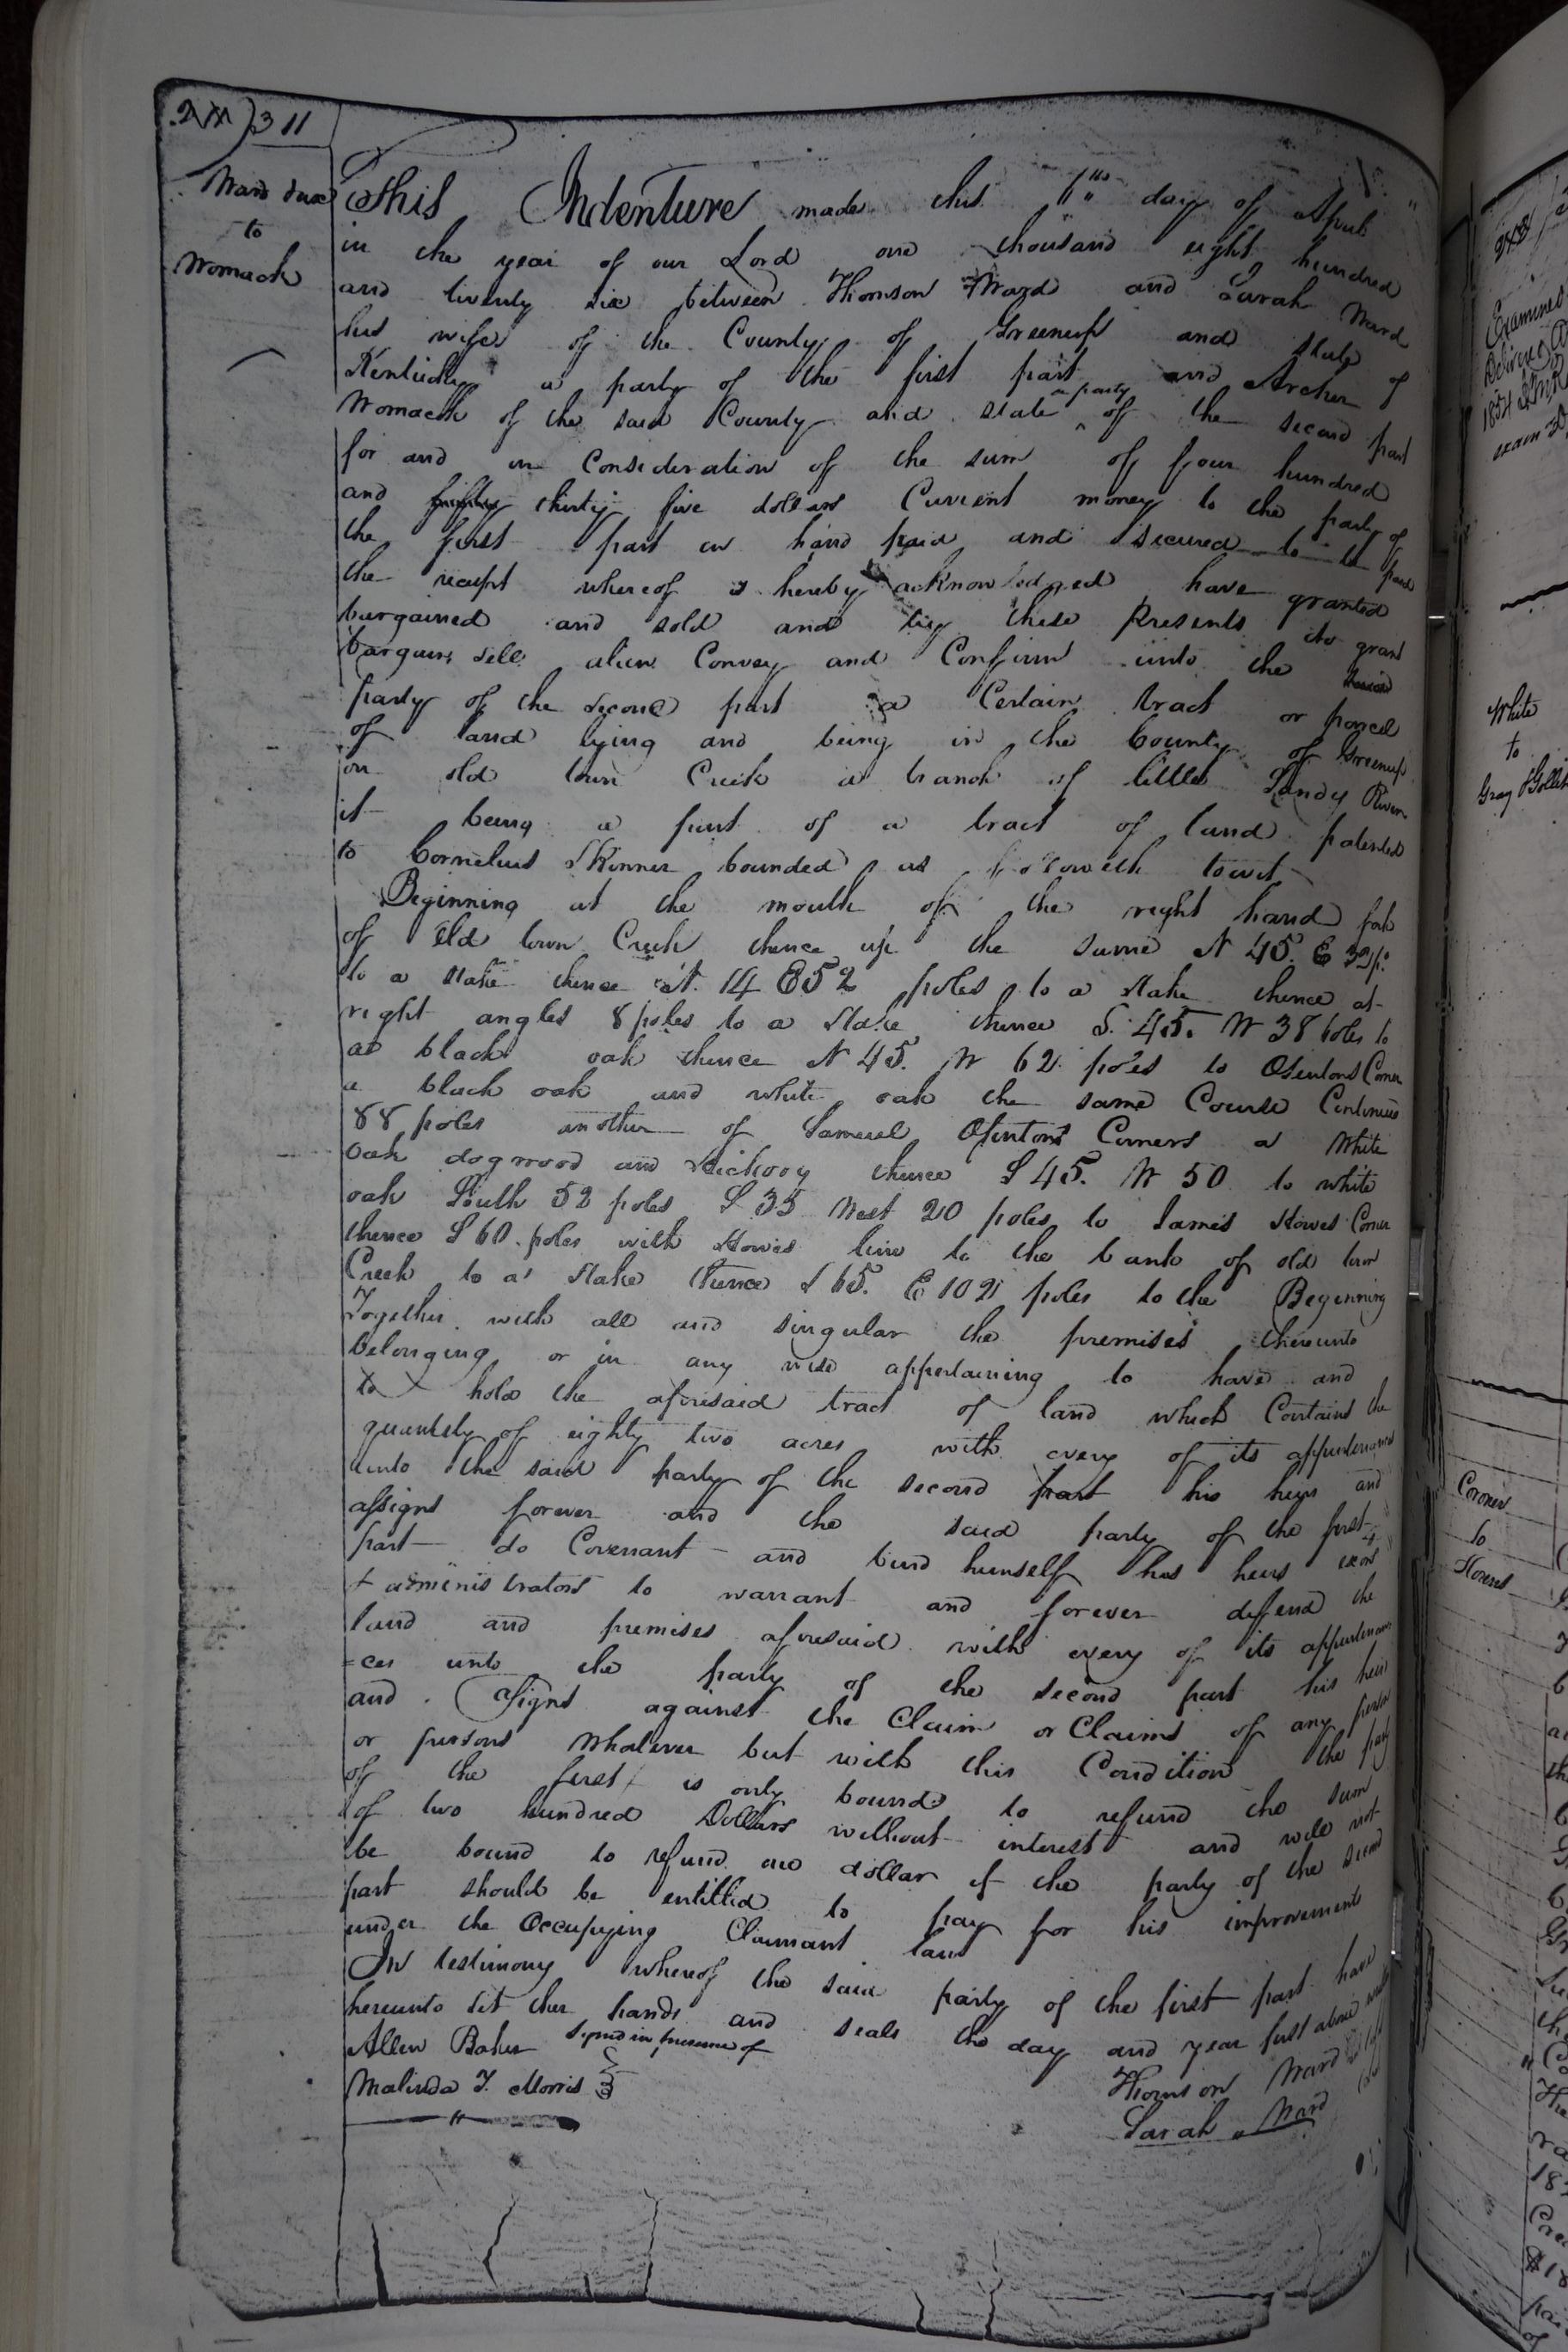 311
Ward &
to
Womack
This Indenture made this 6th day of April
in the year of our Lord one thousand eight hundred
and twenty six between Thomson Ward and Sarah Ward
his wife of the County of Greenup and state of
Kentucky a party of the first part and Archer
Womack of the said County and state a party of the second part
for and in Consideration of the sum of four hundred
and thirty five dollars Current money to the party of
the first part in hand paid and secured to be paid
the receipt whereof is hereby acknowledged have granted
bargained and sold and by these Presents do grant
bargain sell alien Convey and Confirm unto the said
party of the second part a Certain tract or parcel
of land lying and being in the County of Greenup
on old town Creek a branch of little Sandy River
it being a part of a tract of land patented
to Cornelius Skinner bounded as followeth towit
Beginning at the mouth of the right hand fork
of old town Creek thence up the same N 45. E 32 p.
to a stake thence N. 14 E 52 poles to a stake thence at
right angles 8 poles to a Stake thence S. 45. W 38 poles to
a black oak thence N 45. W 62 poles to Osentons Corner
a black oak and white oak the same Course Continued
88 poles another of Samuel Osentons Corners a White
oak dogwood and Hickory thence S 45. W 50 to white
oak South 52 poles S 35 West 20 poles to James Howes Corner
thence S 60 poles with Howes line to the bank of old town
Creek to a Stake thence S 65. E 102 poles to the Beginning
Together with all and singular the premises thereunto
belonging or in any wise appertaining to have and
to hold the aforesaid tract of land which Contains the
quantity of eighty two acres with every of its appurtenances
unto the said party of the second part his heirs and
assigns forever and the said party of the first
part do Covenant and bind himself his heirs exors
+ administrators to warrant and forever defend the
land and premises aforesaid with every of its appurtenan
=ces unto the party of the second part his heirs
and Assigns against the Claim or Claims of any person
or persons whatever but with this Condition the party
of the first is only bound to refund the sum
of two hundred Dollars without interest and will not
be bound to refund one dollar if the party of the second
part should be entitled to pay for his improvements
under the Occupying Claimant law
In testimony whereof the said party of the first part have
hereunto set their hands and seals the day and year first above
Allen Baker Signed in presence of
Malinda T. Morris
Thomson Ward
Sarah Ward
Examined
White
to
Gray &
Coroner
to